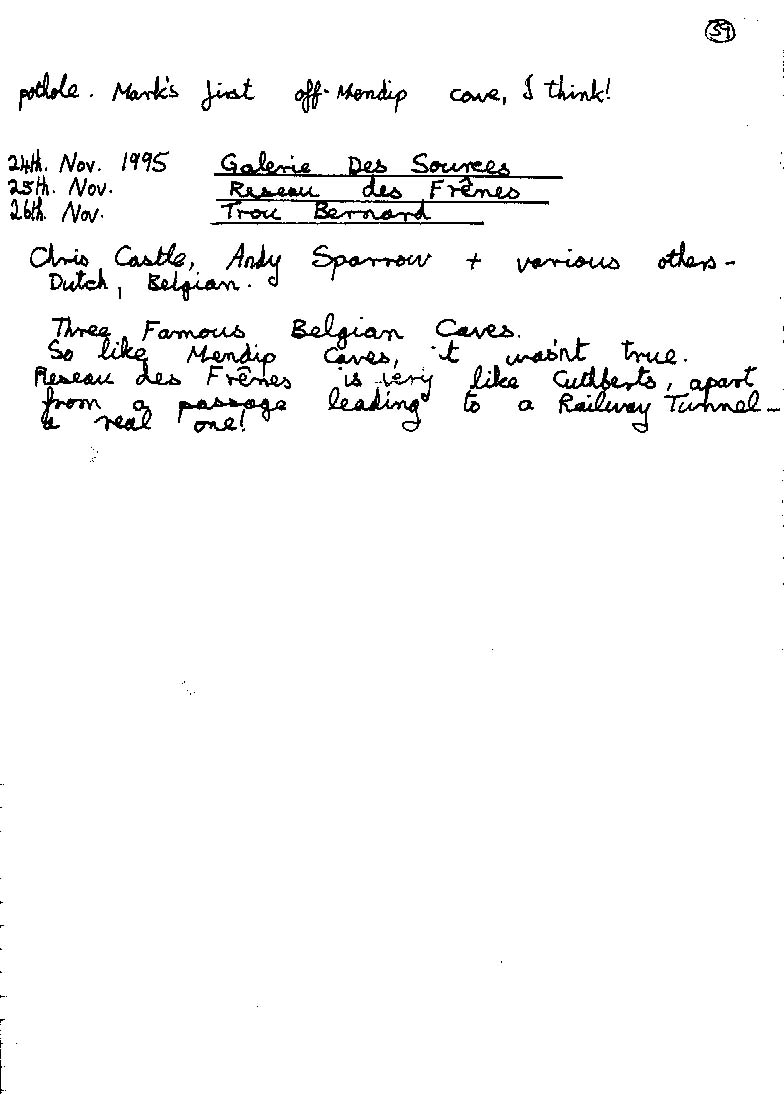 39
pothole. Mark's first off-Mendip cave, I think!
24th. Nov. 1995 Galerie Des Sources
25th. Nov. Reseau des Frênes
26th. Nov. Trou Bernard
Chris Castle, Andy Sparrow + various others -
Dutch, Belgian.
Three Famous Belgian Caves.
So like Mendip Caves, it wasn't true.
Reseau des Frênes is very like Cuthberts, apart
from a passage leading to a Railway Tunnel -
a real one!